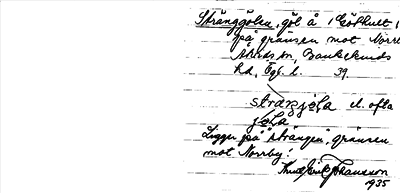 Stränggölen, göl å 1 Göthult 1
på gränsen mot Norrby
Åtvids sn, Bankekinds
hd, Ög. l. 39.
straŋjөla el. ofta
jөla
Ligger på "strängen", gränsen
mot Norrby!
Knut Erik Johansson
1935